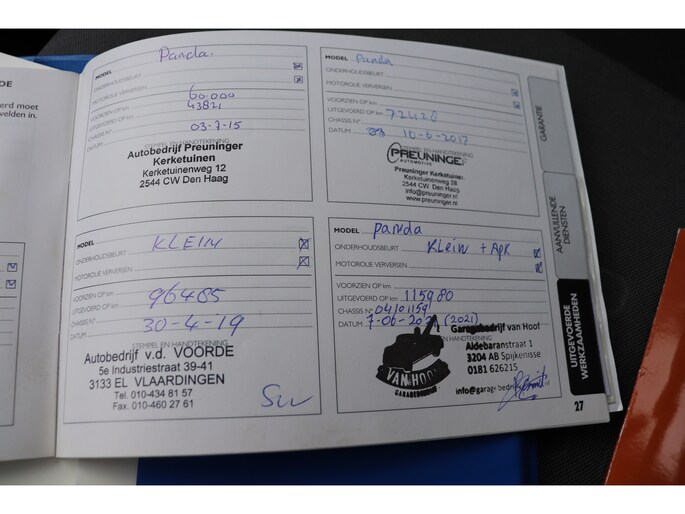 DE
erd moet
velden in.
MODEL Panda.
ONDERHOUDSBEURT
MOTOROLIE VERVERSEN
VOORZIEN OP km 60.000
UITGEVOERD OP km 43821
CHASSIS N°
DATUM 03-7-15
STEMPEL EN HANDTEKENING
Autobedrijf Preuninger
Kerketuinen
Kerketuinenweg 12
2544 CW Den Haag
MODEL Panda
ONDERHOUDSBEURT
MOTOROLIE VERVERSEN
VOORZIEN OP km
UITGEVOERD OP km 72420
CHASSIS N°
DATUM 10-6-2017
STEMPEL EN HANDTEKENING
PREUNINGER
AUTOMOTIVE
Preuninger Kerketuinen
Kerketuinenweg 28
2544 CW Den Haag
info@preuninger.nl
www.preuninger.nl
MODEL KLEIN
ONDERHOUDSBEURT
MOTOROLIE VERVERSEN
VOORZIEN OP km
UITGEVOERD OP km 96485
CHASSIS N°
DATUM 30-4-19
STEMPEL EN HANDTEKENING
Autobedrijf v.d. VOORDE
5e Industriestraat 39-41
3133 EL VLAARDINGEN
Tel. 010-434 81 57
Fax. 010-460 27 61
MODEL panda
ONDERHOUDSBEURT Klein + Apk
MOTOROLIE VERVERSEN
VOORZIEN OP km
UITGEVOERD OP km 115980
CHASSIS N° 04101159
DATUM 7-06-2021 (2021)
STEMPEL EN HANDTEKENING
Garagebedrijf van Hoof
Aldebaranstraat 1
3204 AB Spijkenisse
0181 626215
info@garagebedrij
VAN HOOF
GARAGEBEDRIJF
27
GARANTIE
AANVULLENDE
DIENSTEN
UITGEVOERDE
WERKZAAMHEDEN